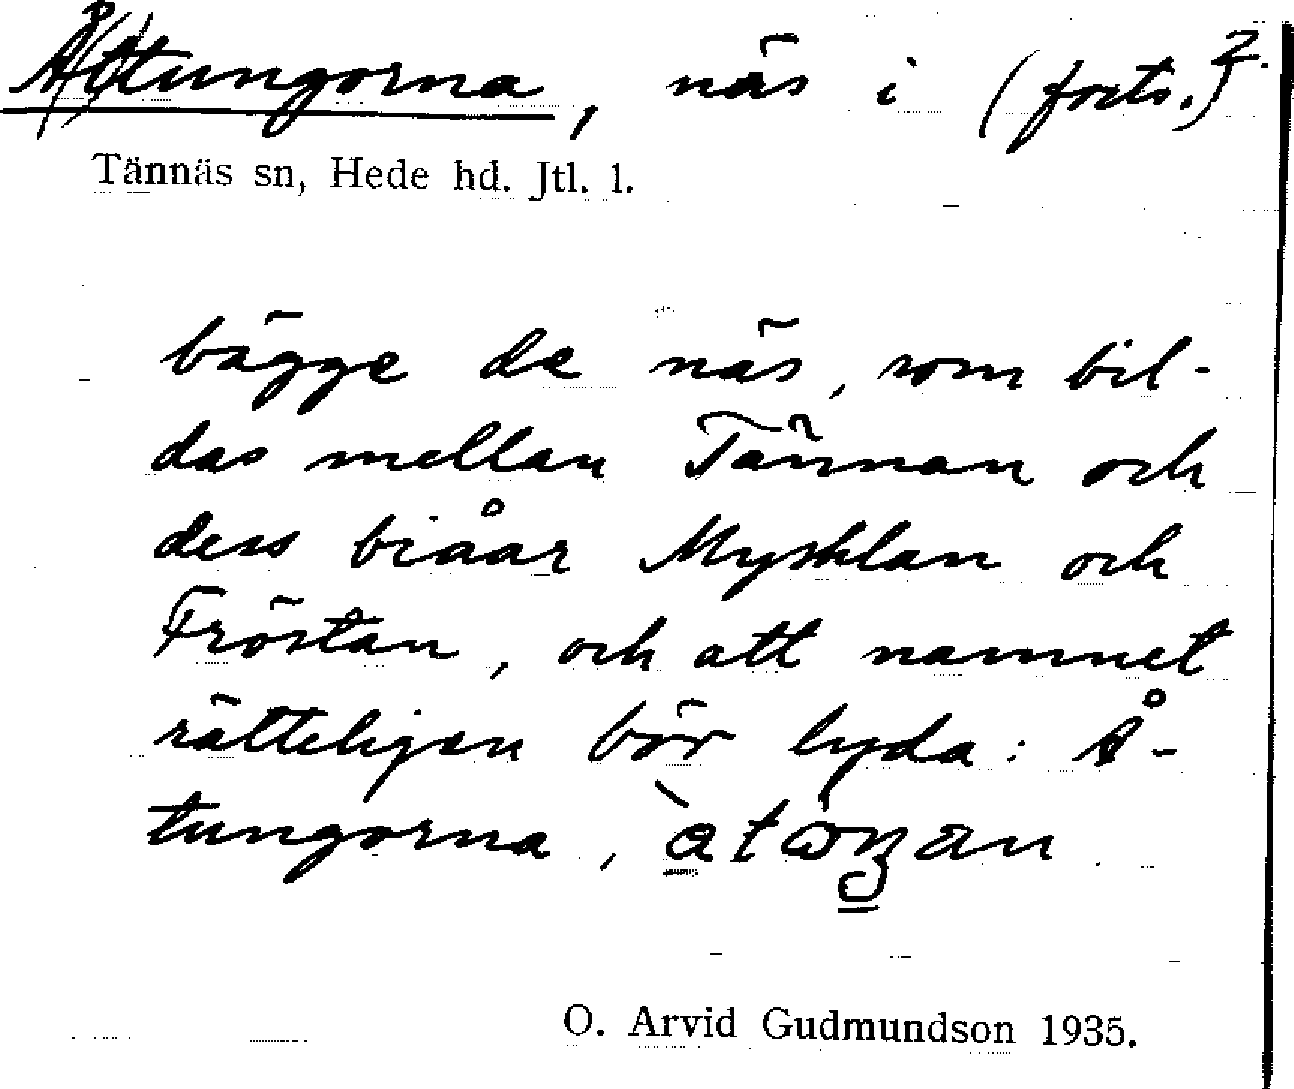 Åttungorna, näs i (forts.) 2.
Tännäs sn, Hede hd. Jtl. l.
bägge de näs, som bil-
das mellan Tännan och
dess biåar Mysklan och
Fröstan, och att namnet
rätteligen bör lyda: Å-
tungorna,
O. Arvid Gudmundson 1935.